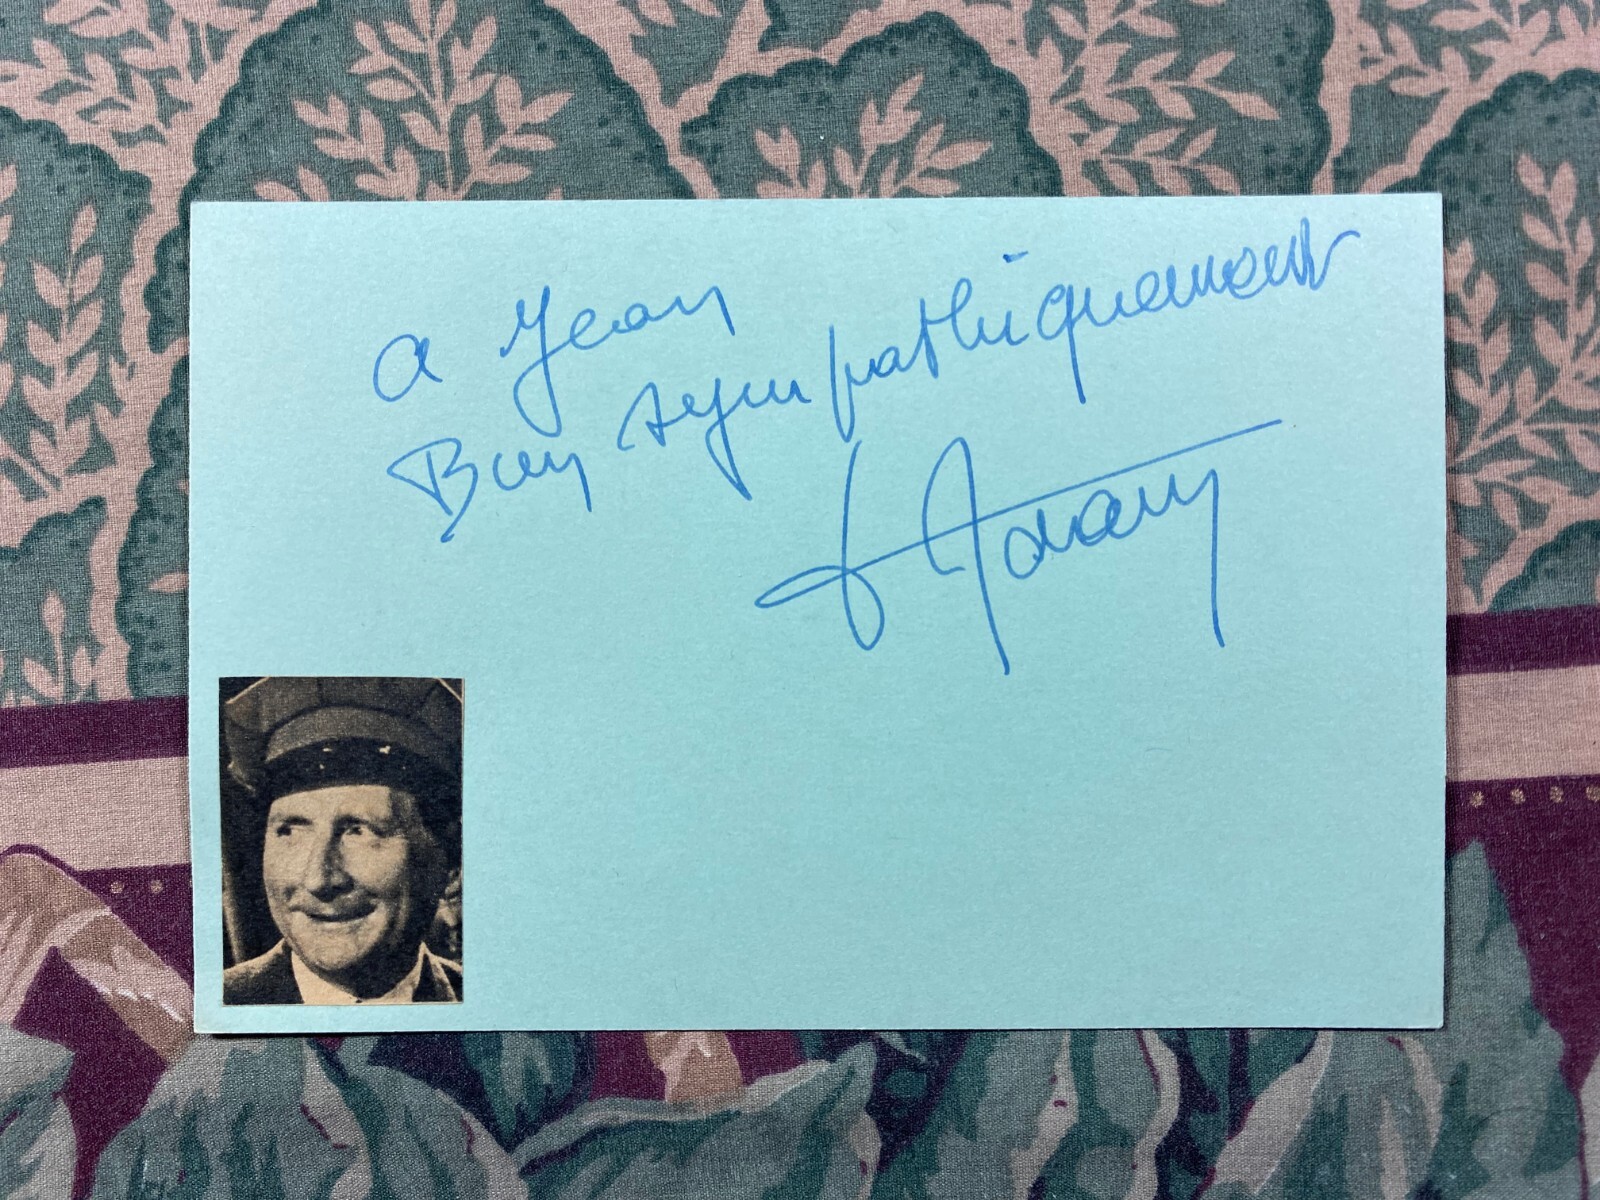 a Jean
Bien sympathiquement